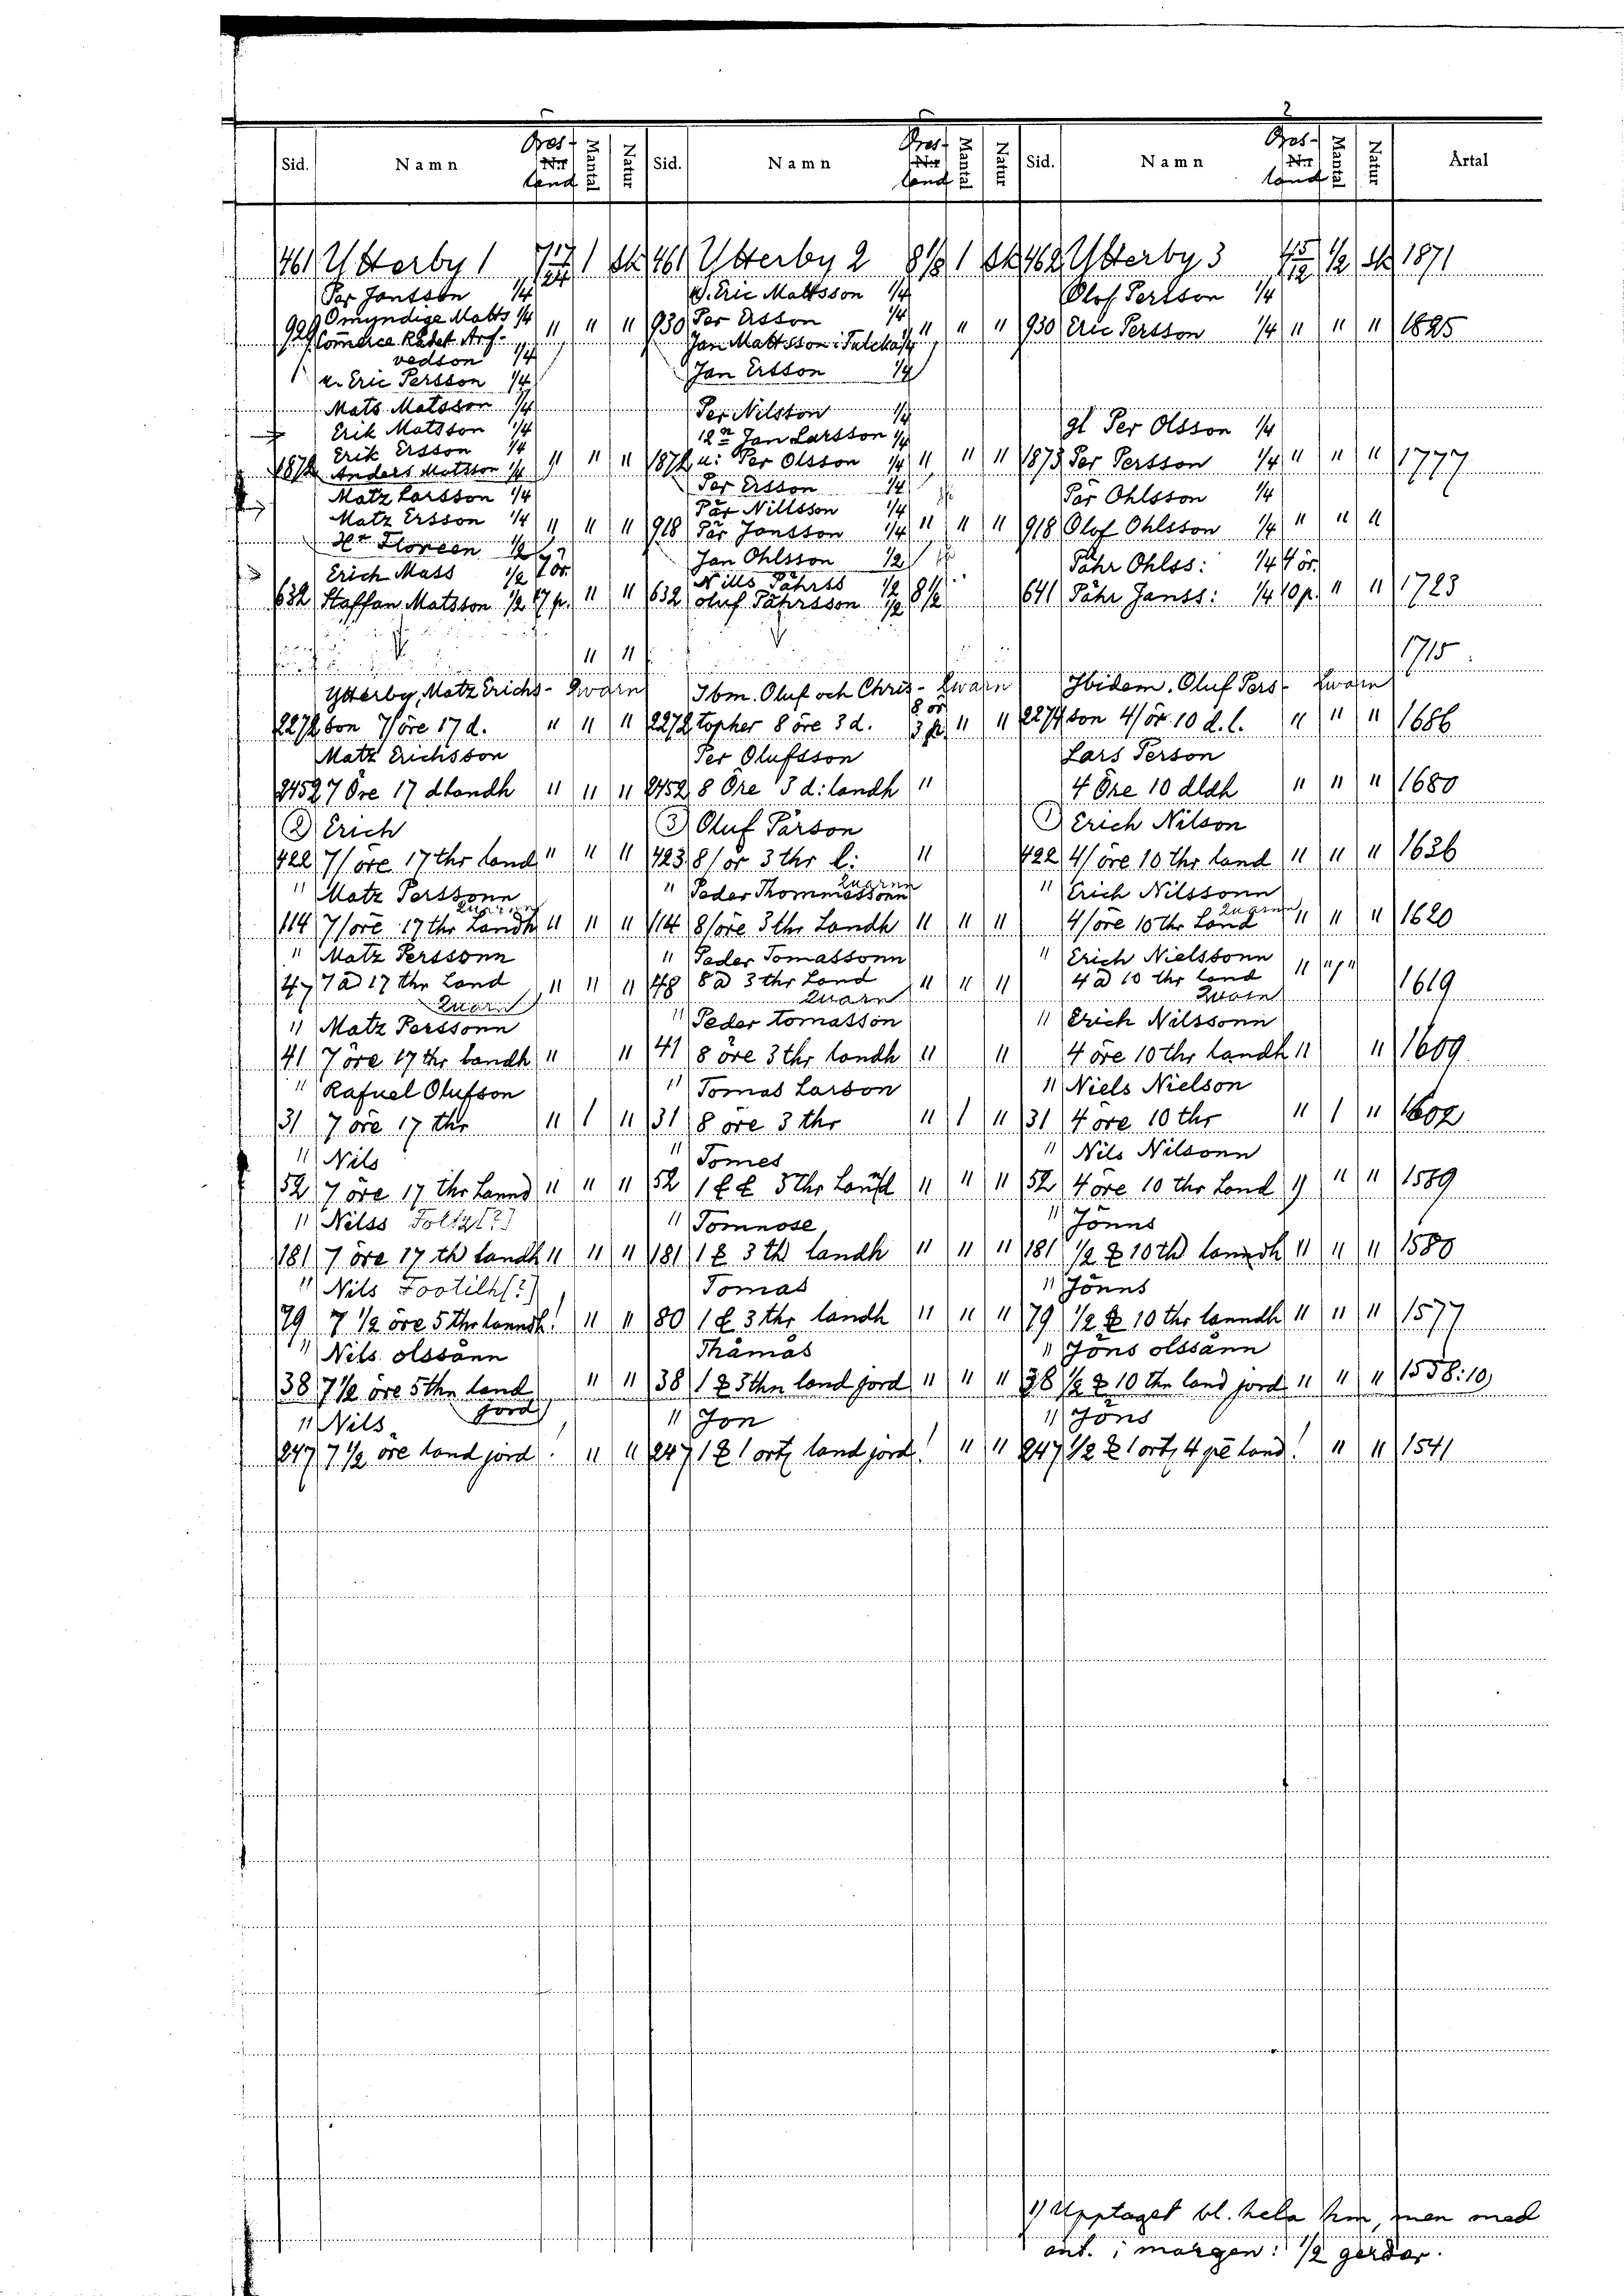 Sid. Namn land Mantal Natur Sid. Namn land Mantal Natur Sid. Namn land Mantal Natur Årtal
461 Ytterby 1 1 sk 461 Ytterby 2 8 1/8 1 sk 462 Ytterby 3 1/2 sk 1871
Per Jansson 1/4 Eric Mattsson 1/4 Olof Persson 1/4
929 Omyndige Matts 1/4 " " " 930 Per Ersson 1/4 " " " 930 Eric Persson 1/4 " " " 1825
Commerce Rådet Arf- Jan Mattsson i
vedson 1/4
Eric Persson 1/4 Jan Ersson 1/4
Mats Matsson 1/4 Per Nilsson 1/4
Erik Matsson 1/4 Jan Larsson 1/4 gl Per Olsson 1/4
Erik Ersson 1/4
1872 Anders Matsson 1/4 " " " 1872 u: Per Olsson 1/4 " " " 1873 Per Persson 1/4 " " " 1777
Matz Larsson 1/4 Per Ersson 1/4 Pär Ohlsson 1/4
Matz Ersson 1/4 " " " 918 Pär Nillsson 1/4
Pär Jonsson 1/4 " " " 918 Olof Ohlsson 1/4 " " "
Hr Floreen 1/2 Jan Ohlsson 1/2 Påhr Ohlss: 1/4 4 ör
Erich Mass 1/2 7 ör Nills Påhrss 1/2
632 Staffan Matsson 1/2 17 p. " " 632 Oluf Påhrsson 1/2 8 1/2 641 Påhr Janss: 1/4 10 p. " " 1723
" " 1715
Ytterby, Matz Erichs- Qwarn Ibm. Oluf och Chris- Qwarn Ibidem. Oluf Pers- Qwarn
2272 son 7/öre 17 d. " " " 2272 topher 8 öre 3 d. 8 ör " " 2274 son 4/ör 10 d. l. " " " 1686
Matz Erichsson Per Olufsson Lars Person
2452 7 Öre 17 d landh " " " 2452 8 Öre 3 d: landh " 4 Öre 10 dldh " " " 1680
2) Erich 3) Oluf Pärson 1) Erich Nilson
422 7/öre 17 thr land " " " 423 8/ör 3 thr l: " 422 4/öre 10 thr land " " " 1626
" Matz Perssonn " Peder Thommessonn Quarnn " Erich Nilssonn
114 7/öre 17 thr Landh " " " 114 8/öre 3 thr Landh " " " 4/öre 10 thr Land Quarnn " " " 1620
" Matz Perssonn " Peder Tomassonn " Erich Nielssonn
47 7 ö 17 thr Land " " " 48 8 ö 3 thr Land " " " 4 ö 10 thr land " " " 1619
Quarn Quarn Quarn
" Matz Perssonn " Peder tomasson " Erich Nilssonn
41 7 öre 17 thr landh " " 41 8 öre 3 thr landh " " 4 öre 10 thr landh " " 1609
" Rafuel Olufson " Tomas Larson " Niels Nielson
31 7 öre 17 thr " 1 " 31 8 öre 3 thr " 1 " 31 4 öre 10 thr " 1 " 1602
" Nils " Tomes " Nils Nilsonn
52 7 öre 17 thr Lannd " " " 52 3 thr Laund " " " 52 4 öre 10 thr Land " " " 1589
" Nilss Foltzt[?] " Tomnose " Jönns
181 7 öre 17 th landh " " " 181 1 3 th landh " " " 181 1/2 10 th lanndh " " " 1580
" Nils Footilh[?] Tomas " Jönns
79 7 1/2 öre 5 thr lanndh! " " 80 1 3 thr landh " " " 79 1/2 10 thr lanndh " " " 1577
" Nils olssånn Thåmås " Jöns olssånn
38 7 1/2 öre 5 thn land " " 38 1 3 thn land jord " " " 38 1/2 10 thn land jord " " " 1558:10
jord
" Nils " Jon " Jöns
247 7 1/2 öre land jord ! " " 247 1 1 ortz land jord! " " 247 1/2 1 ortz 4 land! " " 1541
1) Upptaget bl. hela hm, men med
ant. i margen: 1/2 gerdar.